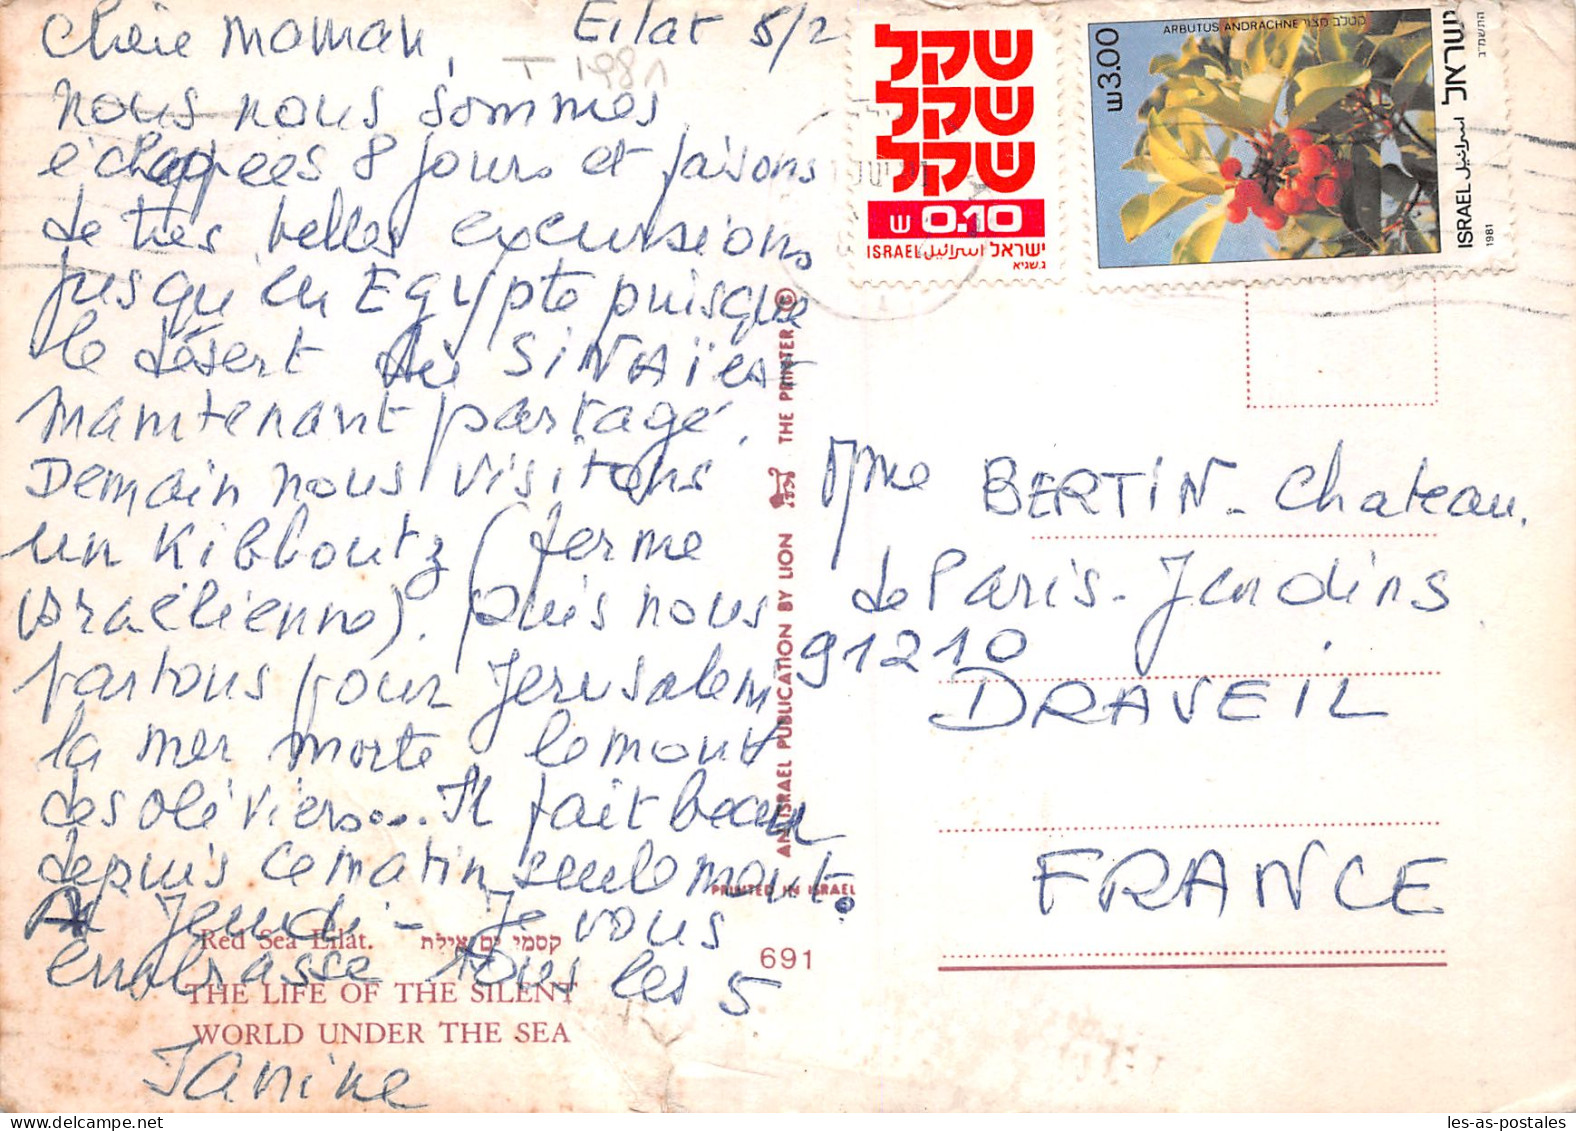 Chère Maman, Eilat 5/2
1981
nous nous sommes
échappées 8 jours et faisons
de très belles excursions
jusqu'en Egypte puisque
le désert du SiNAï est
maintenant partagé.
Demain nous visitons
un Kibboutz (ferme
israëlienne). puis nous
partons pour Jerusalem
la mer morte le mont
des oliviers... Il fait beau
depuis ce matin seulement.
Jeudi - Je vous
embrasse tous les 5
Janine
Red Sea Eilat. קסמי ים אילת
THE LIFE OF THE SILENT
WORLD UNDER THE SEA
691
PRINTED IN ISRAEL
AN ISRAEL PUBLICATION BY LION THE PRINTER
שקל
שקל
שקל
ש 0.10
ISRAEL اسرائيل ישראל
ג.שגיא
ARBUTUS ANDRACHNE קטלב מצוי
ש3.00
ISRAEL اسرائيل ישראל
1981 התשמ"ב
Mme BERTIN - Chateau
de Paris - Jardins
91210
DRAVEIL
FRANCE
les-as-postales